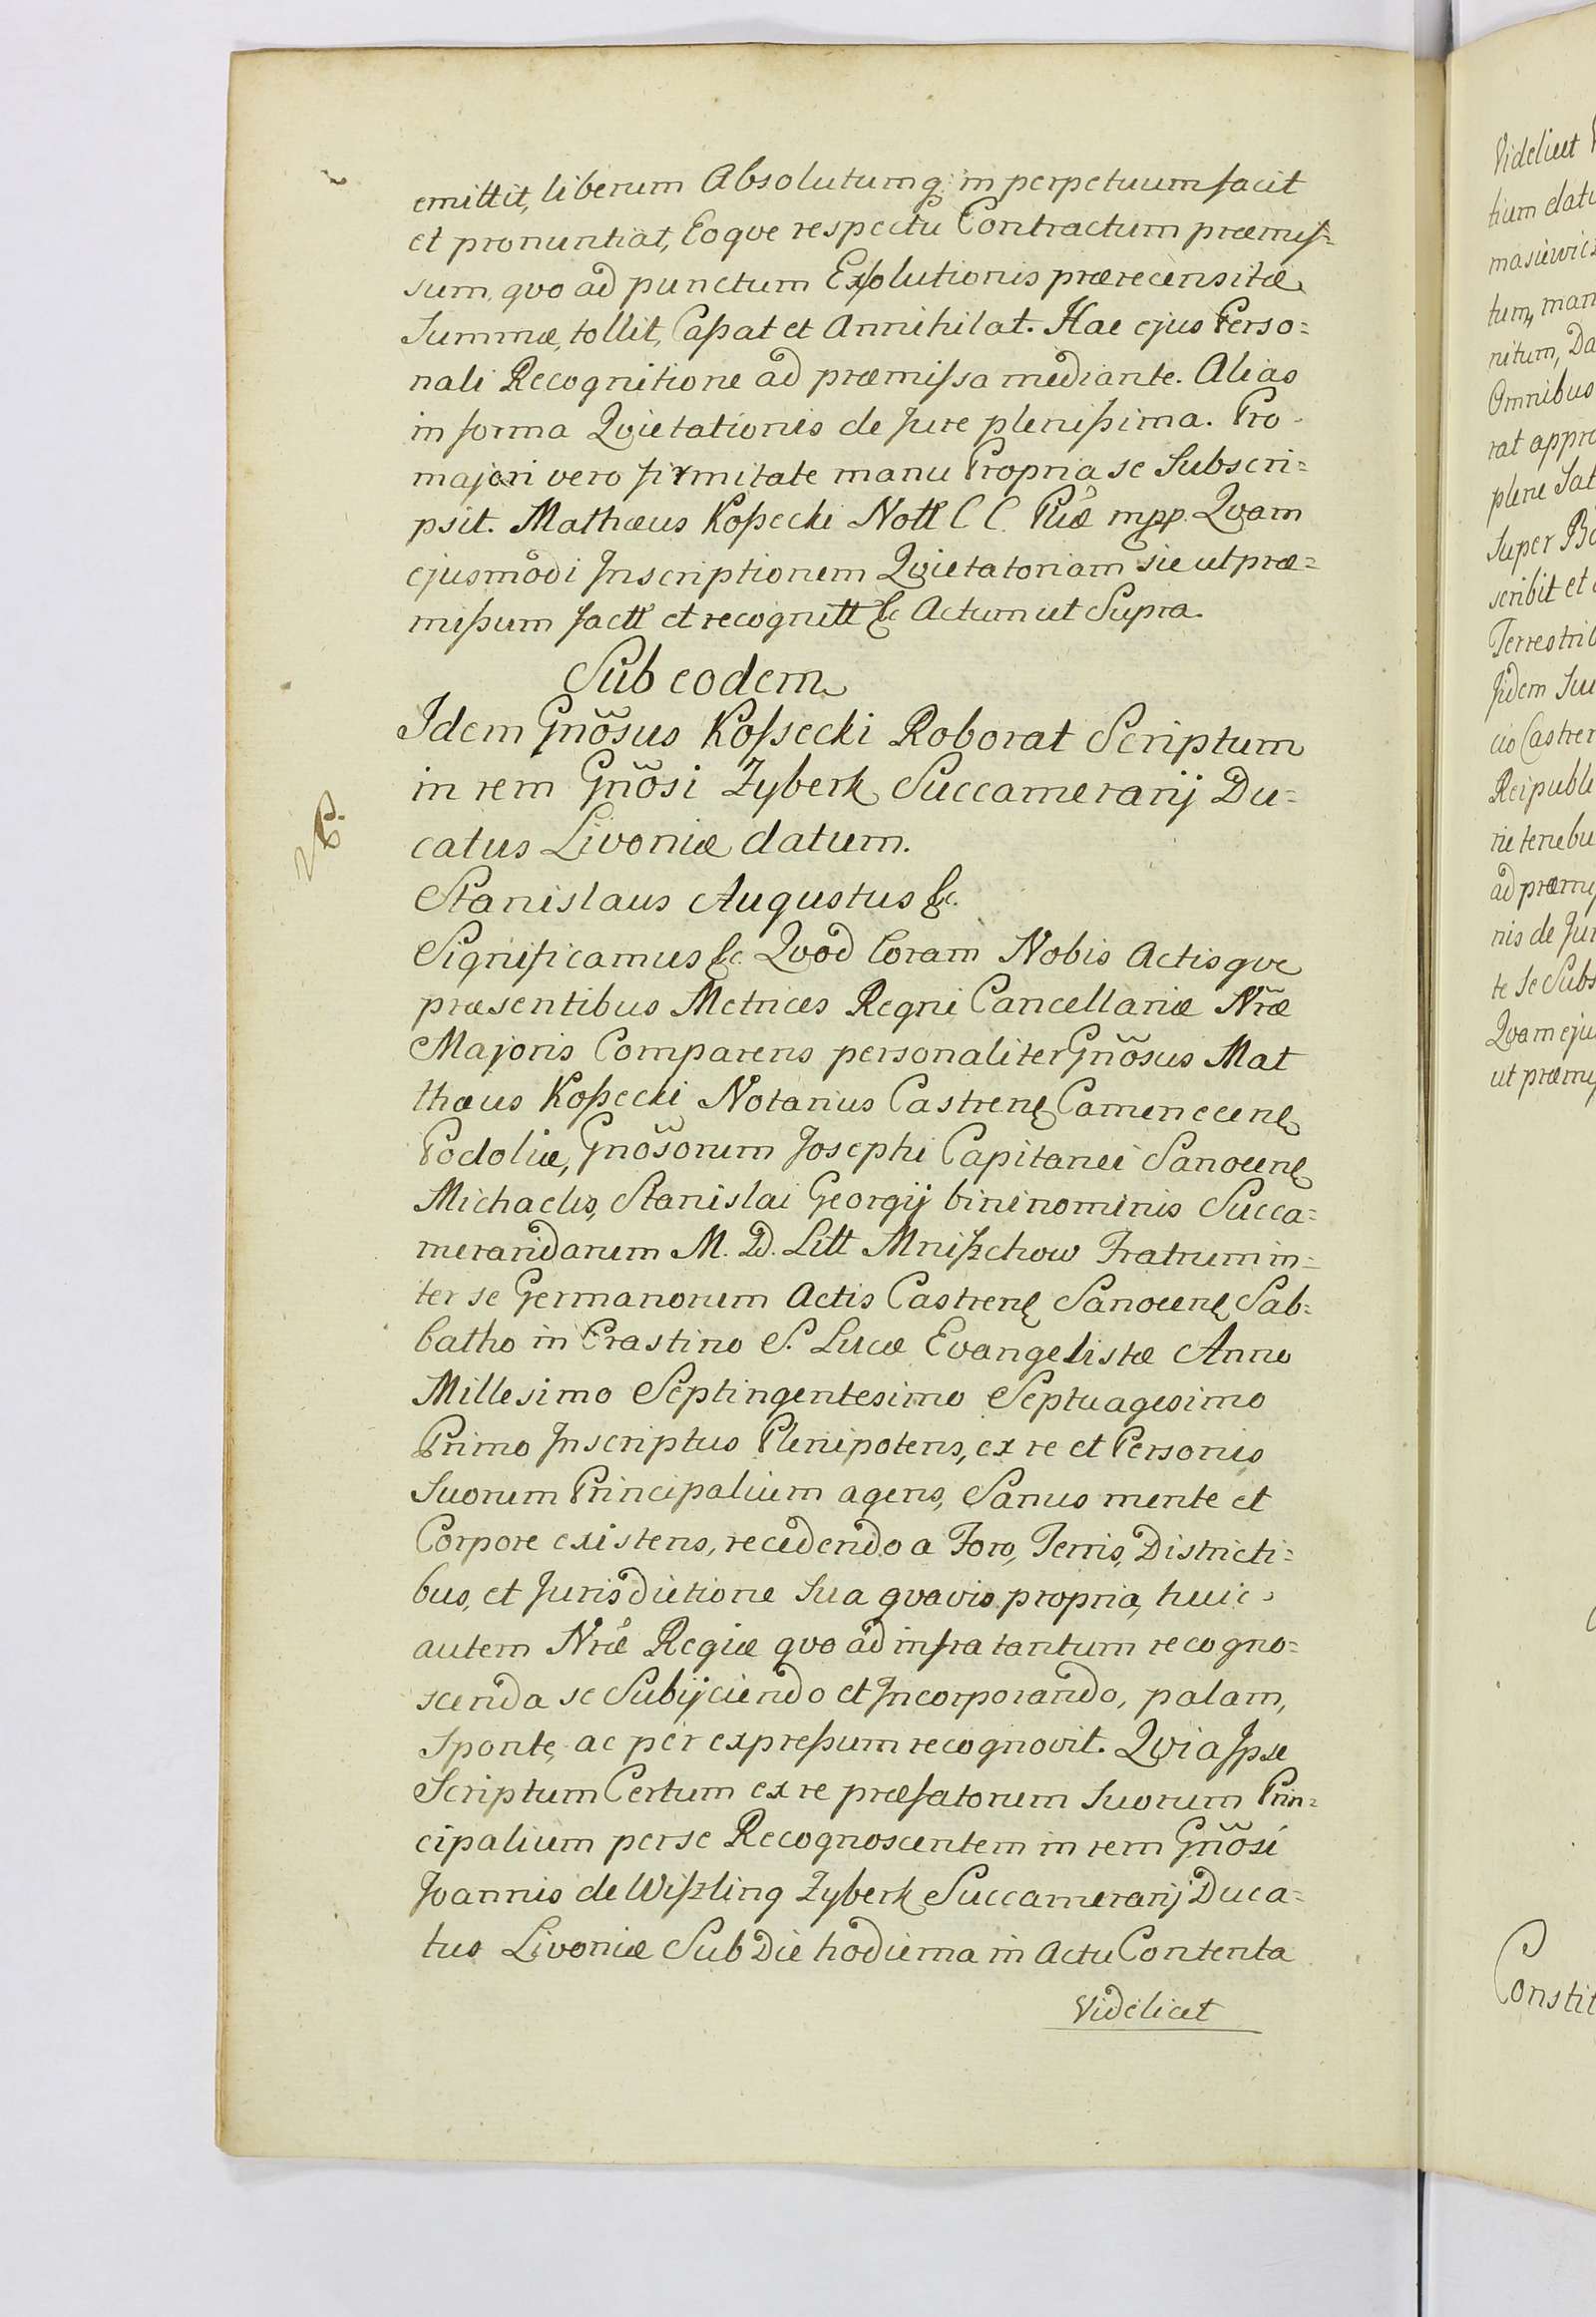 emittit, liberum Absolutumq; in perpetuum facit
et pronuntiat, Eoque respectu Contractum præmiſ=
sum, quo ad punctum Exſolutionis prærecensitæ
Summæ, tollit, Caſsat et Annihilat. Hac ejus Perso=
nali Recognitione ad præmiſsa mediante. Alias
in forma Quietationis de Jure pleniſsima. Pro
majori vero firmitate manu Propria se Subscri=
psit. Mathæus Koſsecki Nott C C. Pliæ mpp. Quam
ejusmodi Inscriptionem Quietatoriam sic ut præ=
miſsum factt et recognitt &c Actum ut Supra.
Sub eodem
Idem Gnõsus Koſsecki Roborat Scriptum
in rem Gnõsi Zyberk Succamerarij Du=
catus Livoniæ datum.
Stanislaus Augustus &c.
Significamus &c. Quod Coram Nobis Actisque
præsentibus Metrices Regni Cancellariæ Nr̃æ
Majoris Comparens personaliter Gnõsus Mat
thæus Koſsecki Notarius Castren Camenecen
Podoliæ, Gnõsorum Josephi Capitanei Sanocen
Michaelis, Stanislai Georgij bini nominis Succa=
merandarum M. D. Litt Mniſzchow Fratrum in=
ter se Germanorum Actis Castren Sanocen Sab=
batho in Crastino S. Lucæ Evangelistæ Anno
Millesimo Septingentesimo Septuagesimo
Primo Inscriptus Plenipotens, ex re et Personis
Suorum Principalium agens, Sanus mente et
Corpore existens, recedendo a Foro, Terris, Districti=
bus, et Jurisdictione Sua quavis propria, huic
autem Nr̃æ Regiæ quo ad infra tantum recogno=
scenda se Subijciendo et Incorporando, palam,
Sponte, ac per expreſsum recognovit. Quia Ipse
Scriptum Certum ex re præfatorum Suorum Prin=
cipalium per se Recognoscentem in rem Gnõsi
Joannis de Wiſzling Zyberk Succamerarij Duca=
tus Livoniæ Sub Die hodierna in Actu Contenta
Videlicet
Videlicet
tium
tum,
nitum,
Omnibus
rat
Super
scribit et
Castren
ad
nis de
ut